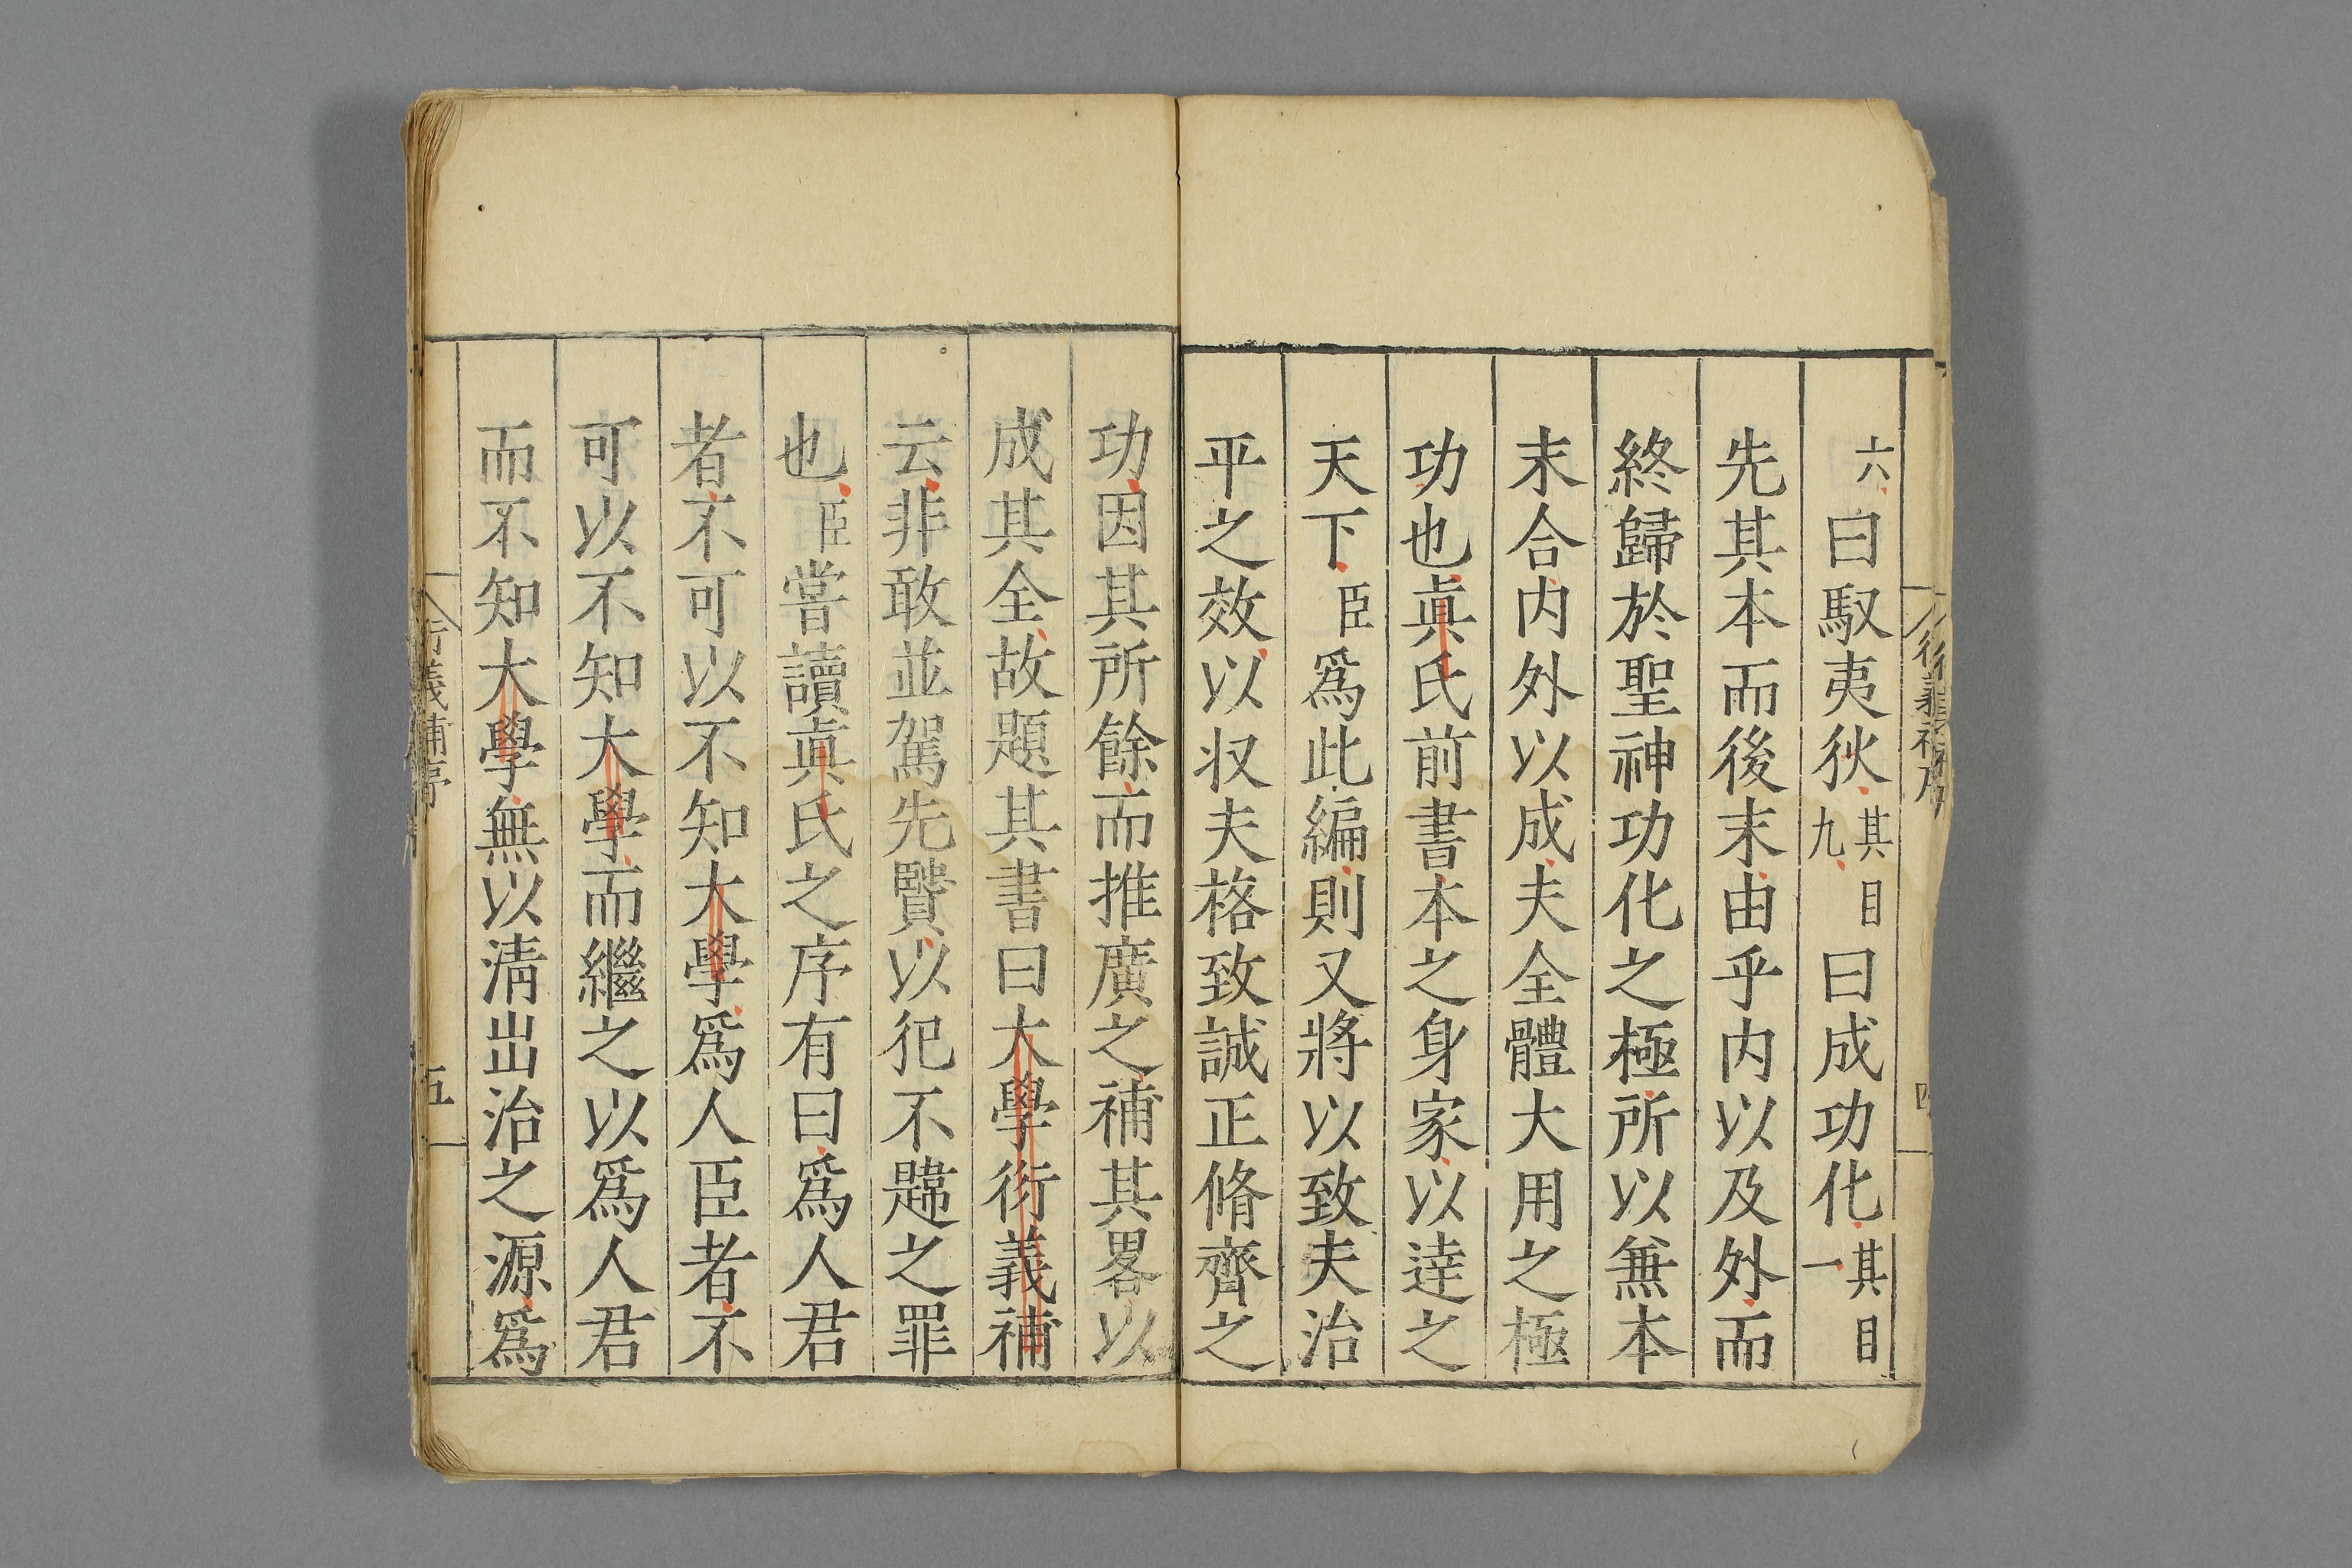 六曰馭夷狄其目九曰成功化其目一
先其本而後末由乎内以及外而
終歸於聖神功化之極所以兼本
末合内外以成夫全體大用之極
功也眞氏前書本之身家以逹之
天下臣爲此編則又將以致夫治
平之效以收夫格致誠正脩齊之
功因其所餘而推廣之補其畧以
成其全故題其書曰大學衍義補
云非敢並駕先賢以犯不韙之罪
也臣嘗讀眞氏之序有曰爲人君
者不可以不知大學爲人臣者不
可以不知大學而繼之以爲人君
而不知大學無以淸出治之源爲
衍義補序
五